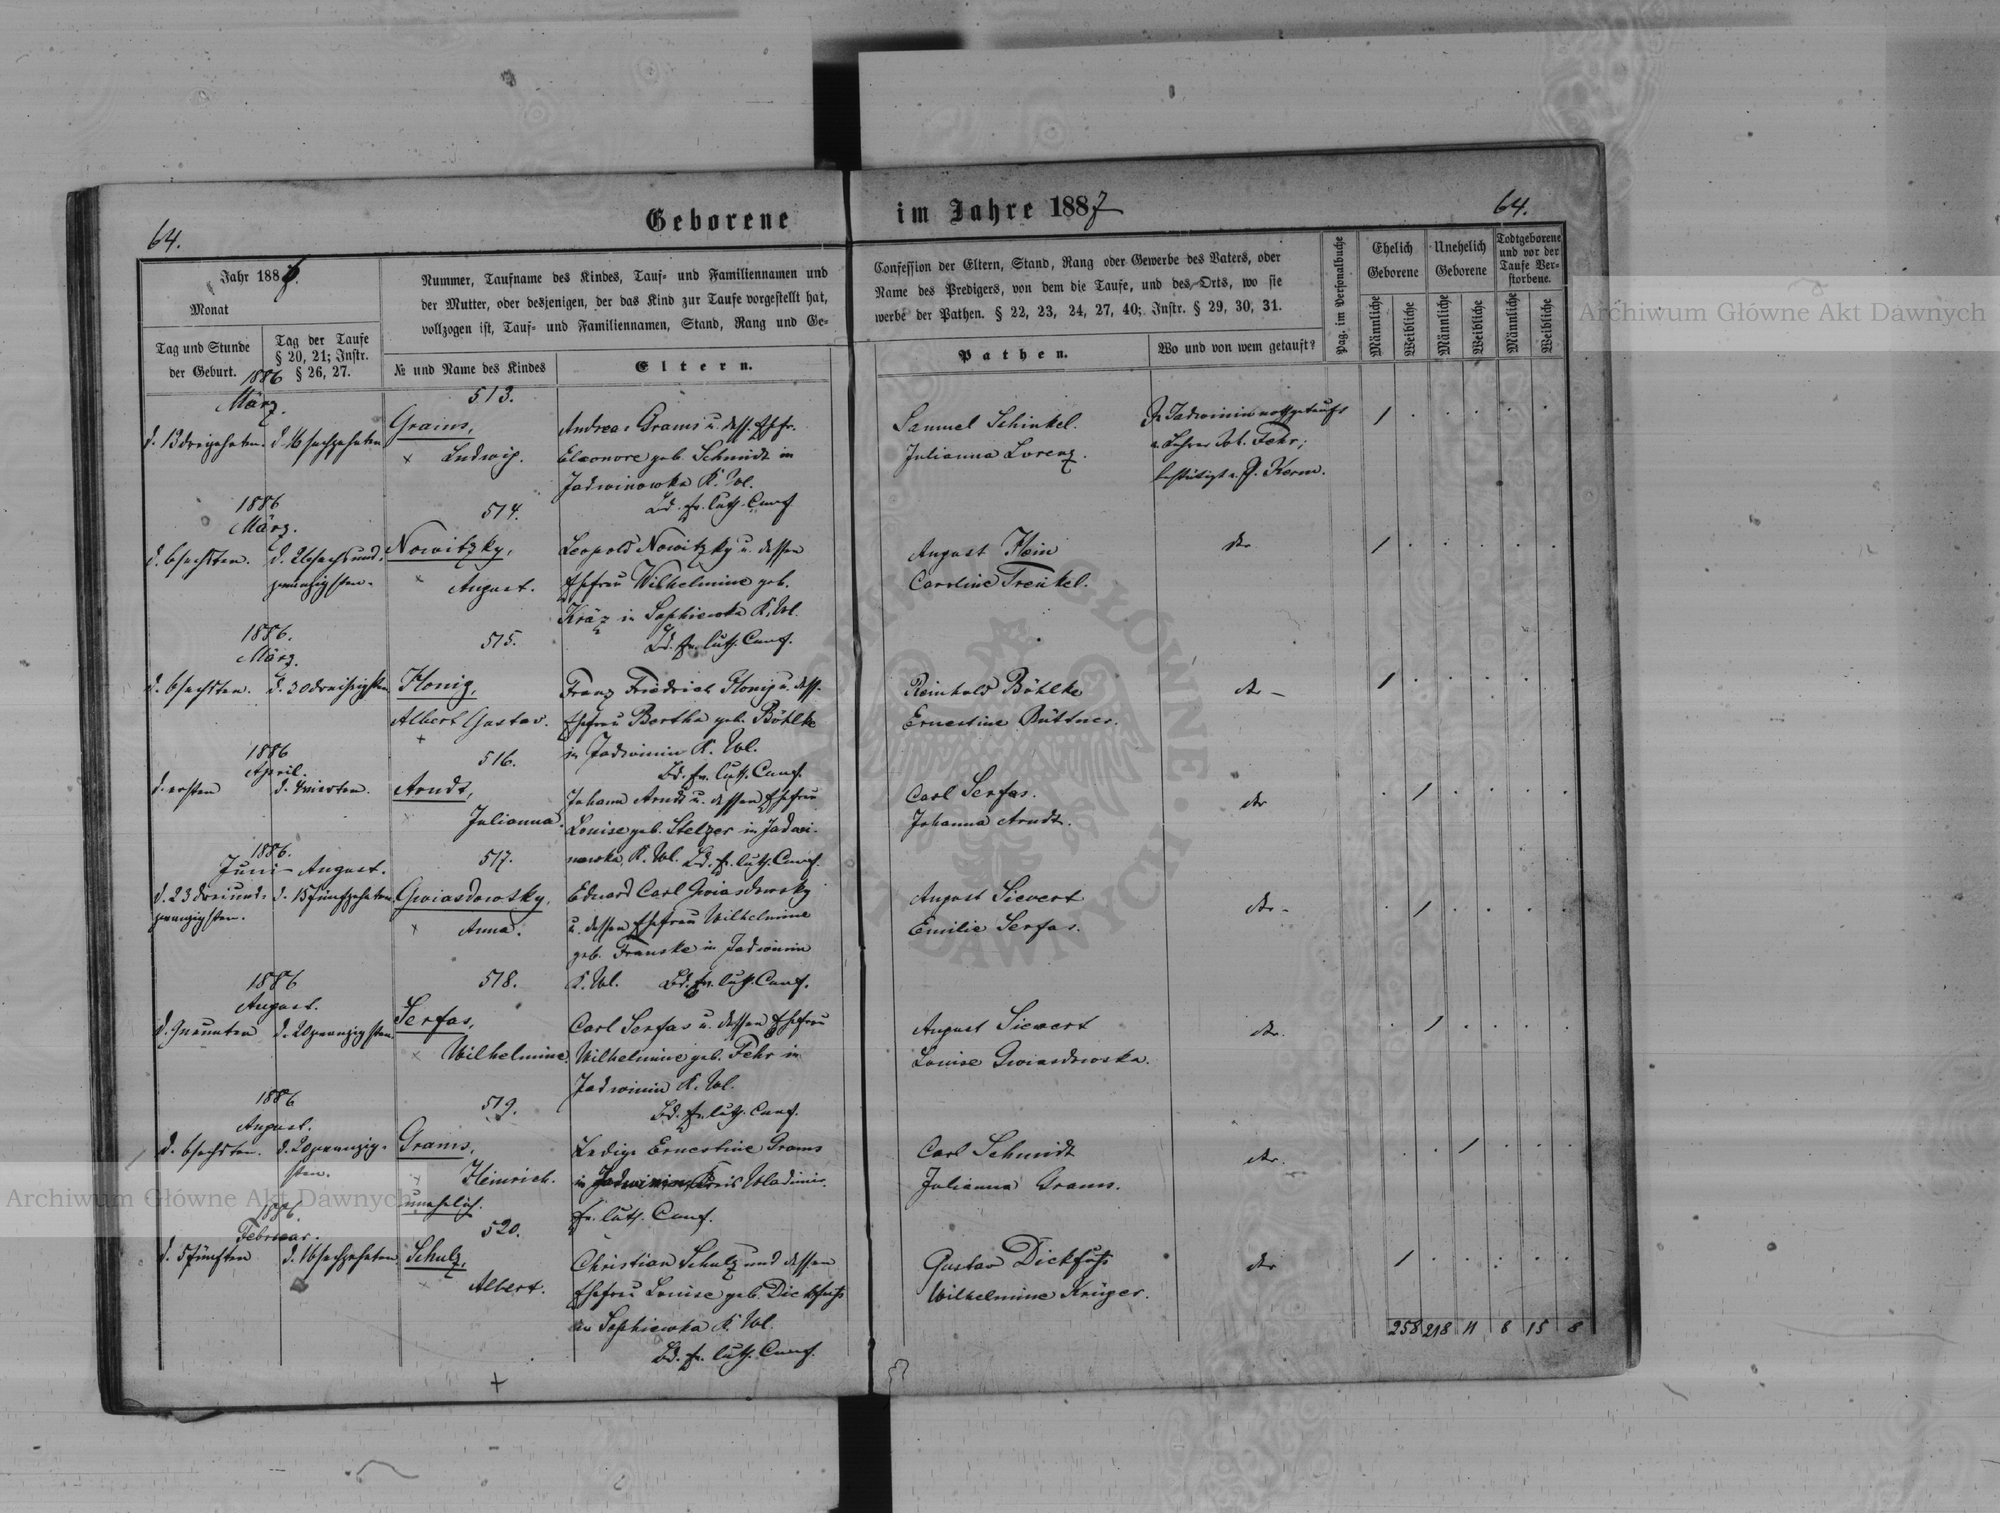 64.
Geborene
im Jahre 1887
64.
Jahr 1886.
Monat
Tag und Stunde
der Geburt.
Tag der Taufe
§ 20, 21; Instr.
§ 26, 27.
Nummer, Taufname des Kindes, Tauf- und Familiennamen und
der Mutter, oder desjenigen, der das Kind zur Taufe vorgestellt hat,
vollzogen ist, Tauf- und Familiennamen, Stand, Rang und Ge-
№ und Name des Kindes
Eltern.
Confession der Eltern, Stand, Rang oder Gewerbe des Vaters, oder
Name des Predigers, von dem die Taufe, und des Orts, wo sie
werbe der Pathen. § 22, 23, 24, 27, 40; Instr. § 29, 30, 31.
Pathen.
Wo und von wem getauft?
Pag. im Personalbuche
Ehelich
Geborene
Unehelich
Geborene
Todtgeborene
und vor der
Taufe Ver-
storbene.
Männliche
Weibliche
Männliche
Weibliche
Männliche
Weibliche
1886
März.
513.
d. 13 dreizehnten. d. 16 sechzehnten
Grams,
Ludwig.
Andreas Grams u. dess. Ehefr.
Eleonore geb. Schmidt in
Jadwinowka K. Wl.
Bd. ev. luth. Conf.
Samuel Schinkel.
Julianna Lorenz.
In Jadwinin nothgetauft
v. Lehrer Fehr;
bestätigt v. P. Kerm.
1886
März.
514.
d. 6 sechsten. d. 26 sechsund-
zwanzigsten.
Nowitzky,
August.
Leopold Nowitzky u. dessen
Ehefrau Wilhelmine geb.
Kräz in Sophiewka K. Wl.
Bd. ev. luth. Conf.
August Klein
Caroline Trenkel.
dto
1886.
März.
515.
d. 6 sechsten. d. 30 dreißigsten
Honig,
Albert Gustav.
Franz Friedrich Honig u. dess.
Ehefrau Bertha geb. Böhlke
in Jadwinin K. Wl.
Bd. ev. luth. Conf.
Reinhold Böhlke
Ernestine Büttner.
dto –
1886
April.
516.
d. ersten d. 4 vierten.
Arndt,
Julianna.
Johann Arndt u. dessen Ehefrau
Louise geb. Stelzer in Jadwi-
nowka, K. Wl. Bd. ev. luth. Conf.
Carl Serfas.
Johanna Arndt.
dto
1886.
Juni – August.
517.
d. 23 dreiund-
zwanzigsten.
d. 15 fünfzehnten
Gwiasdowsky,
Anna.
Eduard Carl Gwiasdowsky
u. dessen Ehefrau Wilhelmine
geb. Franske in Jadwinin
K. Wl. Bd. ev. luth. Conf.
August Sievert
Emilie Serfas.
dto –
1886
August.
518.
d. 9 neunten d. 20 zwanzigsten.
Serfas,
Wilhelmine.
Carl Serfas u. dessen Ehefrau
Wilhelmine geb. Fehr in
Jadwinin K. Wl.
Bd. ev. luth. Conf.
August Sievert
Louise Gwiasdowska.
dto.
1886
August.
519.
d. 6 sechsten. d. 20 zwanzig-
sten.
Grams,
Heinrich.
unehelich.
Ledige Ernestine Grams
in Jadwinin, Kreis Wladimir.
ev. luth. Conf.
Carl Schmidt
Julianna Grams.
dto.
1886.
Februar.
520.
d. 5 fünften d. 16 sechzehnten
Schulz,
Albert.
Christian Schulz und dessen
Ehefrau Louise geb. Dickfuß
in Sophiewka K. Wl.
Bd. ev. luth. Conf.
Gustav Dickfuß
Wilhelmine Krüger.
dto
258 218 11 8 15 8
Archiwum Główne Akt Dawnych
Archiwum Główne Akt Dawnych